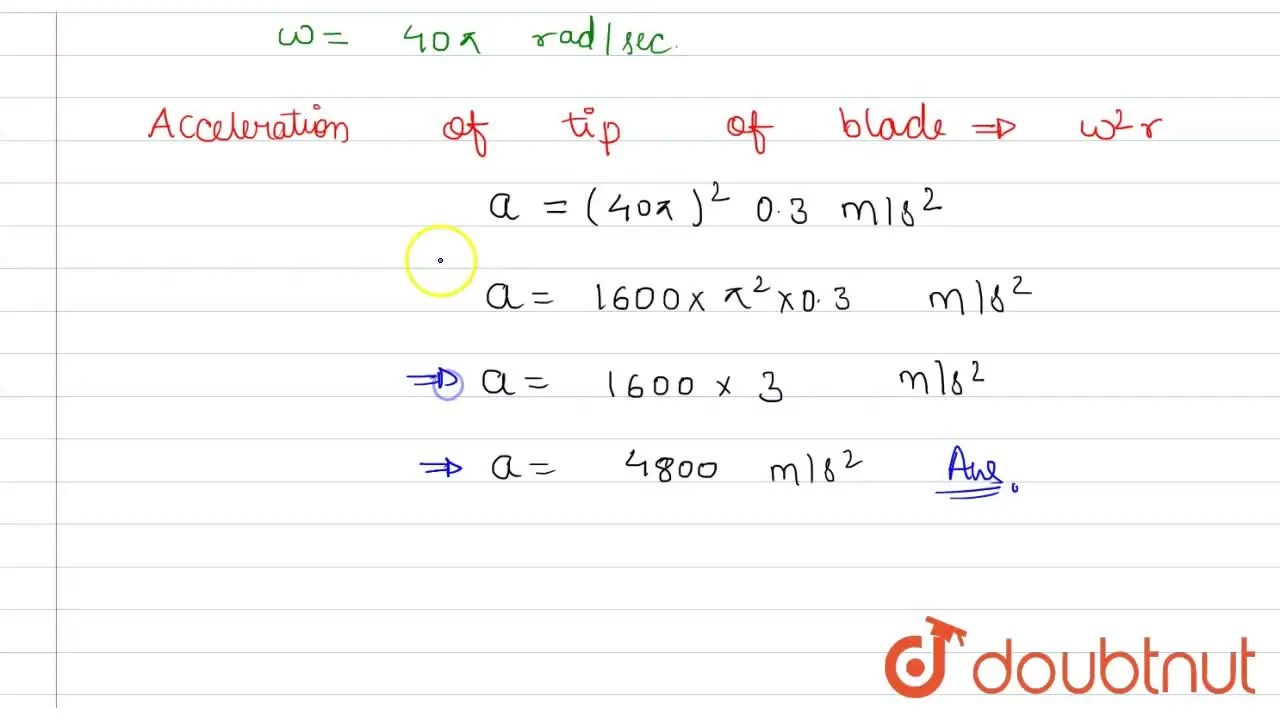 ω = 40π rad/sec.
Acceleration of tip of blade ⇒ ω²r
a = (40π)² 0.3 m/s²
a = 1600 × π² × 0.3 m/s²
⇒ a = 1600 × 3 m/s²
⇒ a = 4800 m/s² Ans.
doubtnut